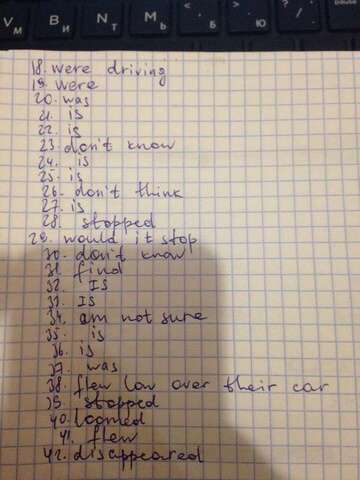 V м
B И
N т
M Ь
Б
Ю
18. were driving
19. were
20. was
21. is
22. is
23. don't know
24. is
25. is
26. don't think
27. is
28. stopped
29. would it stop
30. don't know
31. find
32. IS
33. IS
34. am not sure
35. is
36. is
37. was
38. flew low over their car
39. stopped
40. loomed
41. flew
42. disappeared